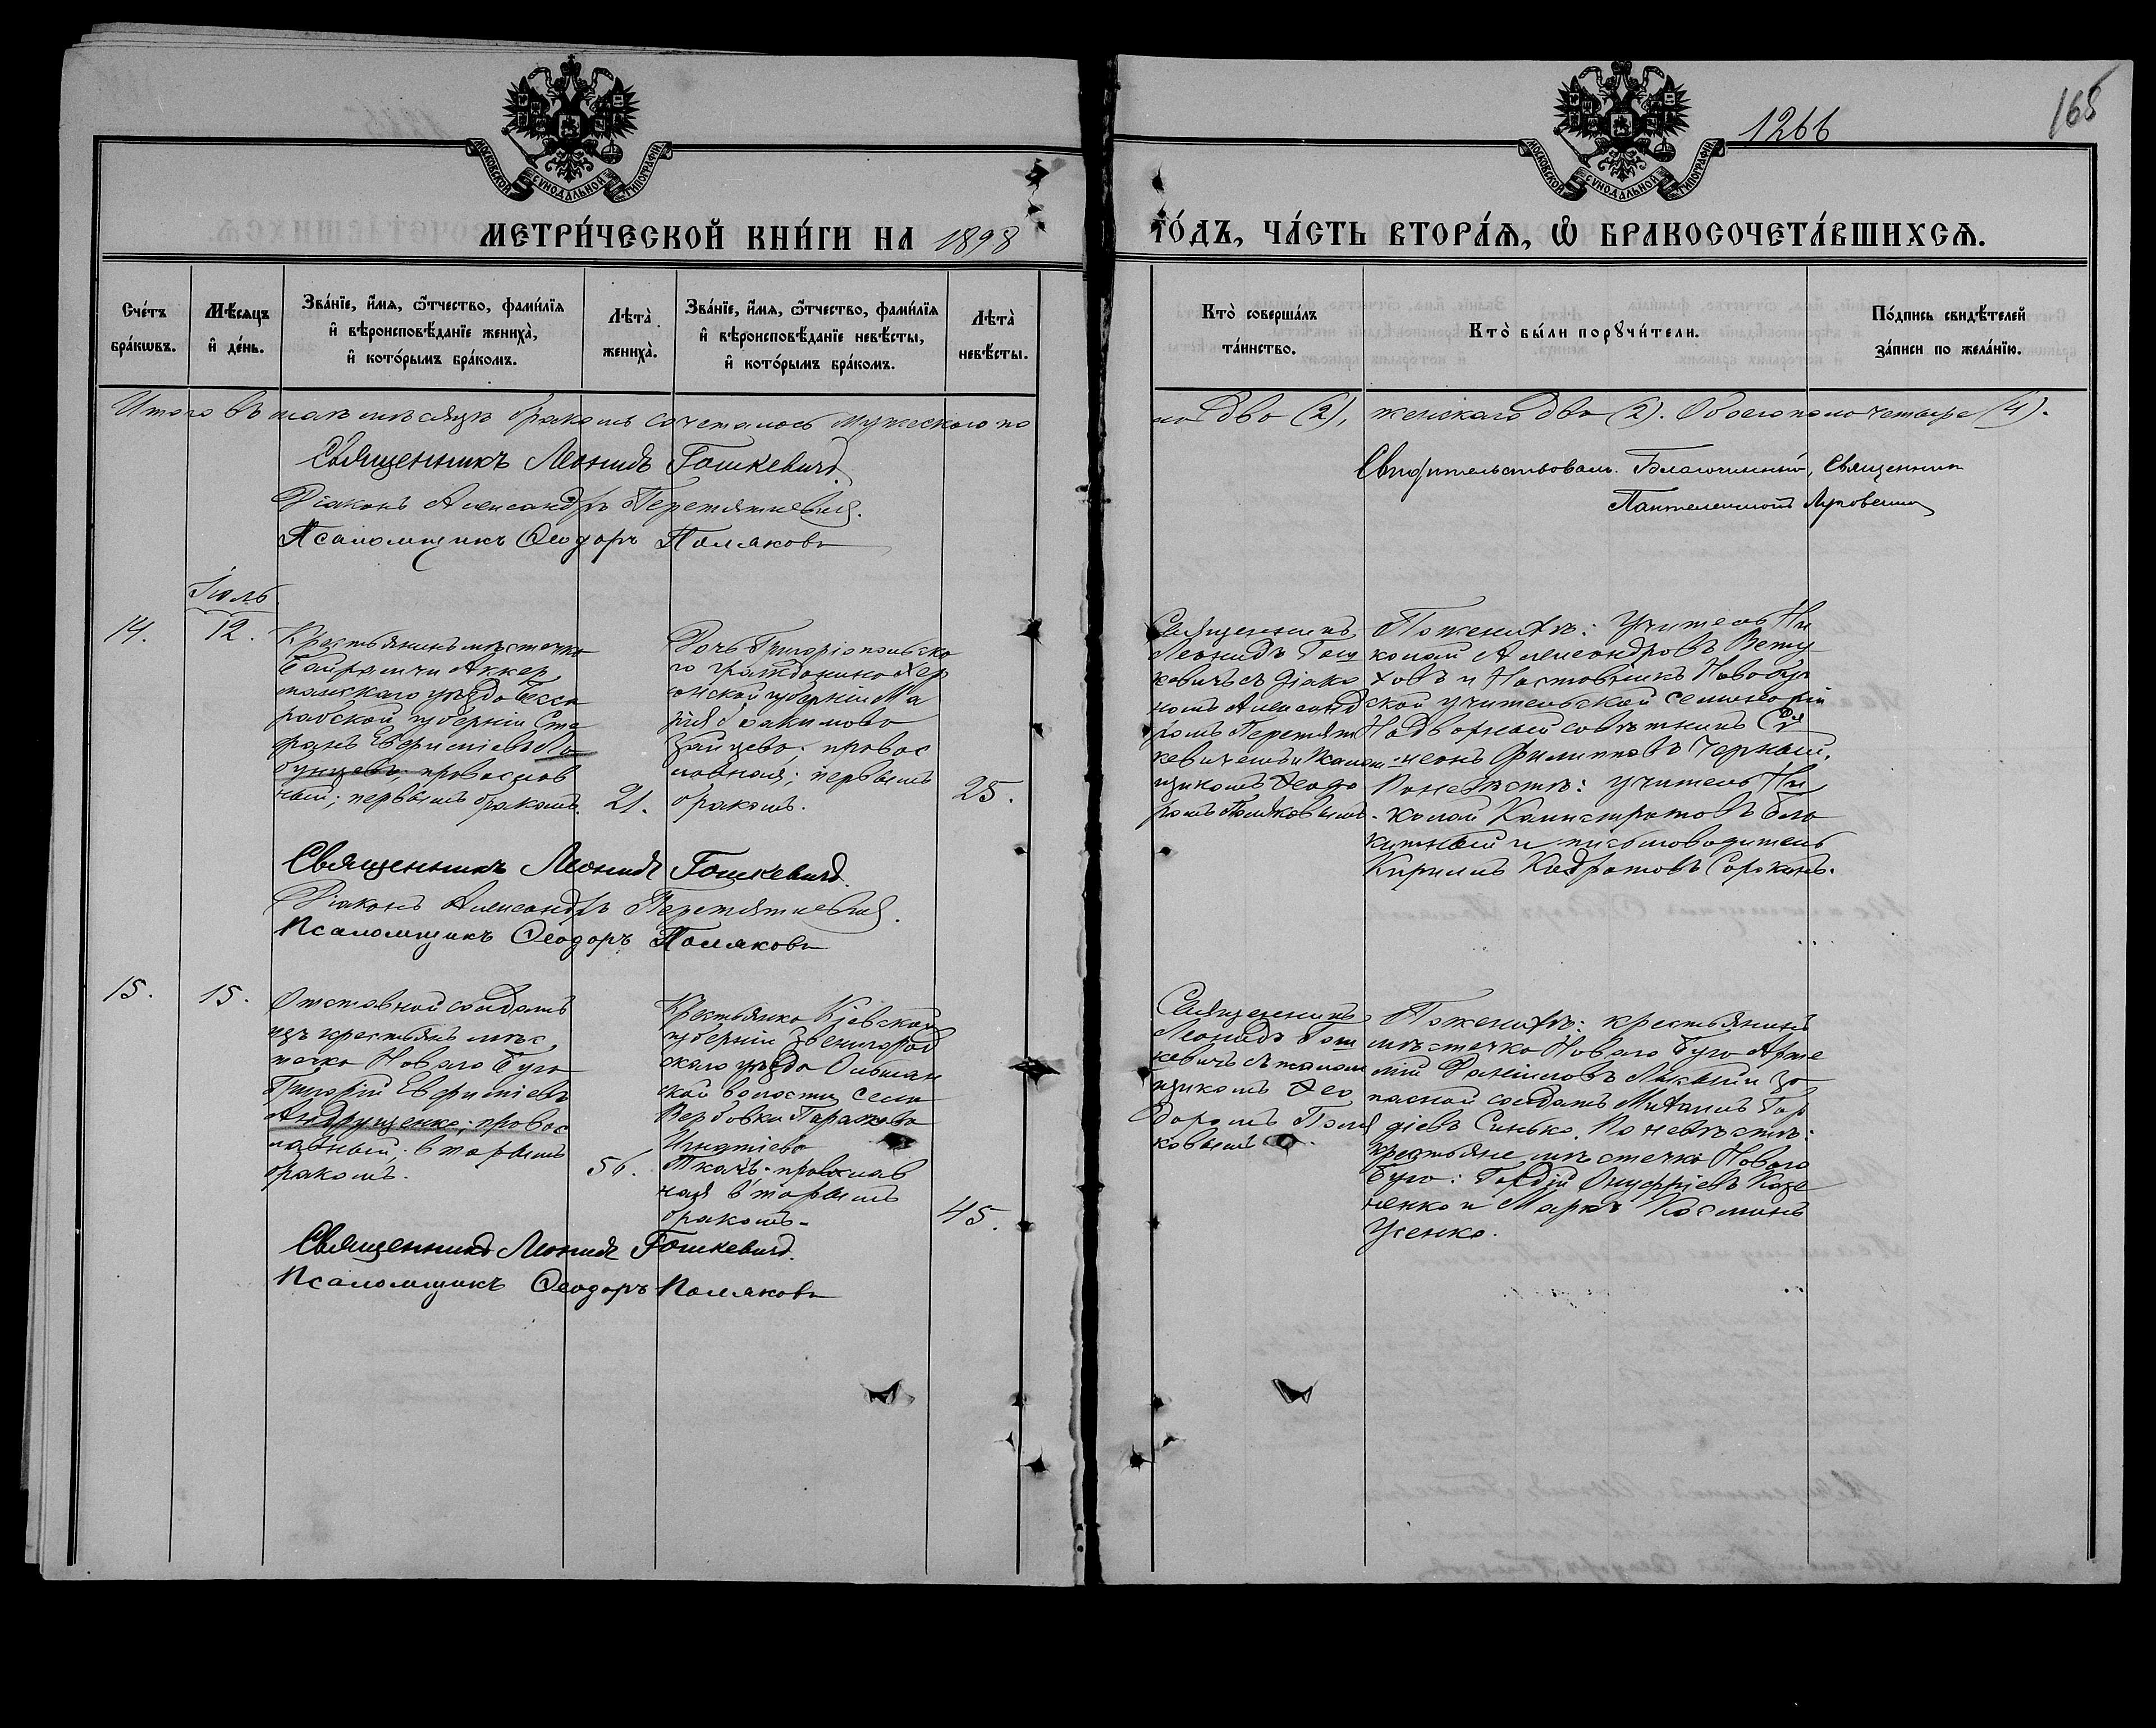 1266
165
МОСКОВСКОЙ СѴНОДАЛЬНОЙ ТИПОГРАФІИ
МОСКОВСКОЙ СѴНОДАЛЬНОЙ ТИПОГРАФІИ
МЕТРИ́ЧЕСКОЙ КНИ́ГИ НА 1898
ГО́ДЪ, ЧА́СТЬ ВТОРА́Ѧ, Ѡ БРАКОСОЧЕТА́ВШИХСѦ.
Сче́тъ бра́кѡвъ.
Мѣ́сѧцъ и҆ де́нь.
Зва́нїе, и҆́мѧ, ѻ҆́тчество, фами́лїѧ и҆ вѣроисповѣ́данїе жениха̀, и҆ кото́рымъ бра́комъ.
Лѣта̀ жениха̀.
Зва́нїе, и҆́мѧ, ѻ҆́тчество, фами́лїѧ и҆ вѣроисповѣ́данїе невѣ́сты, и҆ кото́рымъ бра́комъ.
Лѣта̀ невѣ́сты.
Кто̀ соверша́лъ та́инство.
Кто̀ бы́ли порꙋчи́тели.
По́дпись свидѣ́телей за́писи по жела́нїю.
Итого въ маѣ мѣсяцѣ бракомъ сочеталось мужескаго по
ла два (2), женскаго два (2). Обоего пола четыре (4).
Священникъ Леонидъ Гошкевичъ.
Діаконъ Александръ Перетяткевичъ.
Псаломщикъ Ѳеодоръ Поляковъ
Свидѣтельствовалъ Благочинный, Священникъ
Пантелеимонъ
Іюль
14.
12.
Крестьянинъ мѣстечка
Байрамчи Аккер
манскаго уѣзда Бесса
рабской губерніи Сте
фанъ Евфиміевъ Ло
бунцевъ православ
ный; первымъ бракомъ.
21.
Дочь Григоріопольска
го гражданина Хер
сонской губерніи Ма
рія Іоакимова
Зайцева; правос
лавная; первымъ
бракомъ.
25.
Священникъ
Леонидъ Гош
кевичъ съ діако
номъ Александ
ромъ Перетят
кевичемъ и псалом
щикомъ Ѳеодо
ромъ Поляковымъ.
По женихѣ: учитель Ни
колай Александровъ Вету
ховъ и Наставникъ Новобуг
ской учительской семинаріи
Надворный совѣтникъ Си
меонъ Филипповъ Черный.
По невѣстѣ: учитель Ни
колай Калистратовъ Бла
китный и письмоводитель
Кириллъ Кодратовъ Сорокинъ.
Священникъ Леонидъ Гошкевичъ.
Діаконъ Александръ Перетяткевичъ.
Псаломщикъ Ѳеодоръ Поляковъ
15.
15.
Отставной солдатъ
изъ крестьянъ мѣс
течка Новаго Буга
Григорій Евфиміевъ
Андрущенко; правос
лавный; вторымъ
бракомъ.
56.
Крестьянка Кіевской
губерніи Звенигород
скаго уѣзда Ольшан
ской волости села
Вербовки Параскева
Игнатіева
Ткачъ; православ
ная вторымъ
бракомъ.
45.
Священникъ
Леонидъ Гош
кевичъ съ псалом
щикомъ Ѳео
доромъ Поля
ковымъ.
По женихѣ: крестьянинъ
мѣстечка Новаго Буга Арте
мій Даніиловъ и за
пасной солдатъ Михаилъ Гор
діевъ Синько. По невѣстѣ:
крестьяне мѣстечка Новаго
Буга: Гордій Онуфріевъ Каде
ненко и Маркъ Косминъ
Усенко.
Священникъ Леонидъ Гошкевичъ.
Псаломщикъ Ѳеодоръ Поляковъ